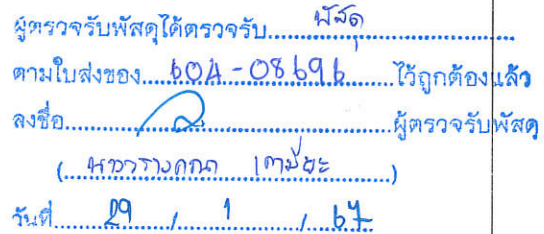 ผู้ตรวจรับพัสดุได้ตรวจรับ.....พัสดุ.....
ตามใบส่งของ.....60A-08696.....ไว้ถูกต้องแล้ว
ลงชื่อ..........ผู้ตรวจรับพัสดุ
(..........)
วันที่.....29...../.....1...../.....67.....